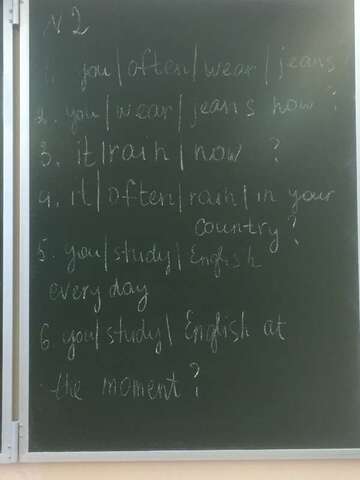 N 2
1. you | often | wear | jeans
2. you | wear | jeans now ?
3. it | rain | now ?
4. it | often | rain | in your
country ?
5. you | study | English
every day
6. you | study | English at
the moment ?